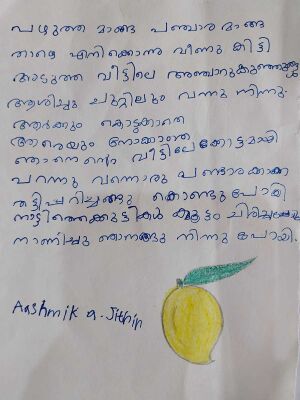 പഴുത്ത മാങ്ങ പഞ്ചാര മാങ്ങ
താഴെ എനിക്കൊന്നു വീണു കിട്ടി
അടുത്ത വീട്ടിലെ അഞ്ചാറുകുഞ്ഞുങ്ങൾ
ആശിച്ചു ചുറ്റിലും വന്നു നിന്നു.
ആർക്കും കൊടുക്കാതെ
ആരെയും നോക്കാതെ
ഞാനെൻ്റെ വീട്ടിലേക്കോട്ടമായി
പറന്നു വന്നൊരു പണ്ടാരക്കാക്ക
തട്ടിപ്പറിച്ചങ്ങു കൊണ്ടുപോയി
നാട്ടിത്തെക്കുട്ടികൾ കൂട്ടം ചിരിച്ചപ്പോൾ
നാണിച്ചു ഞാനങ്ങു നിന്നു പോയി.
Aashmik a. Jithin